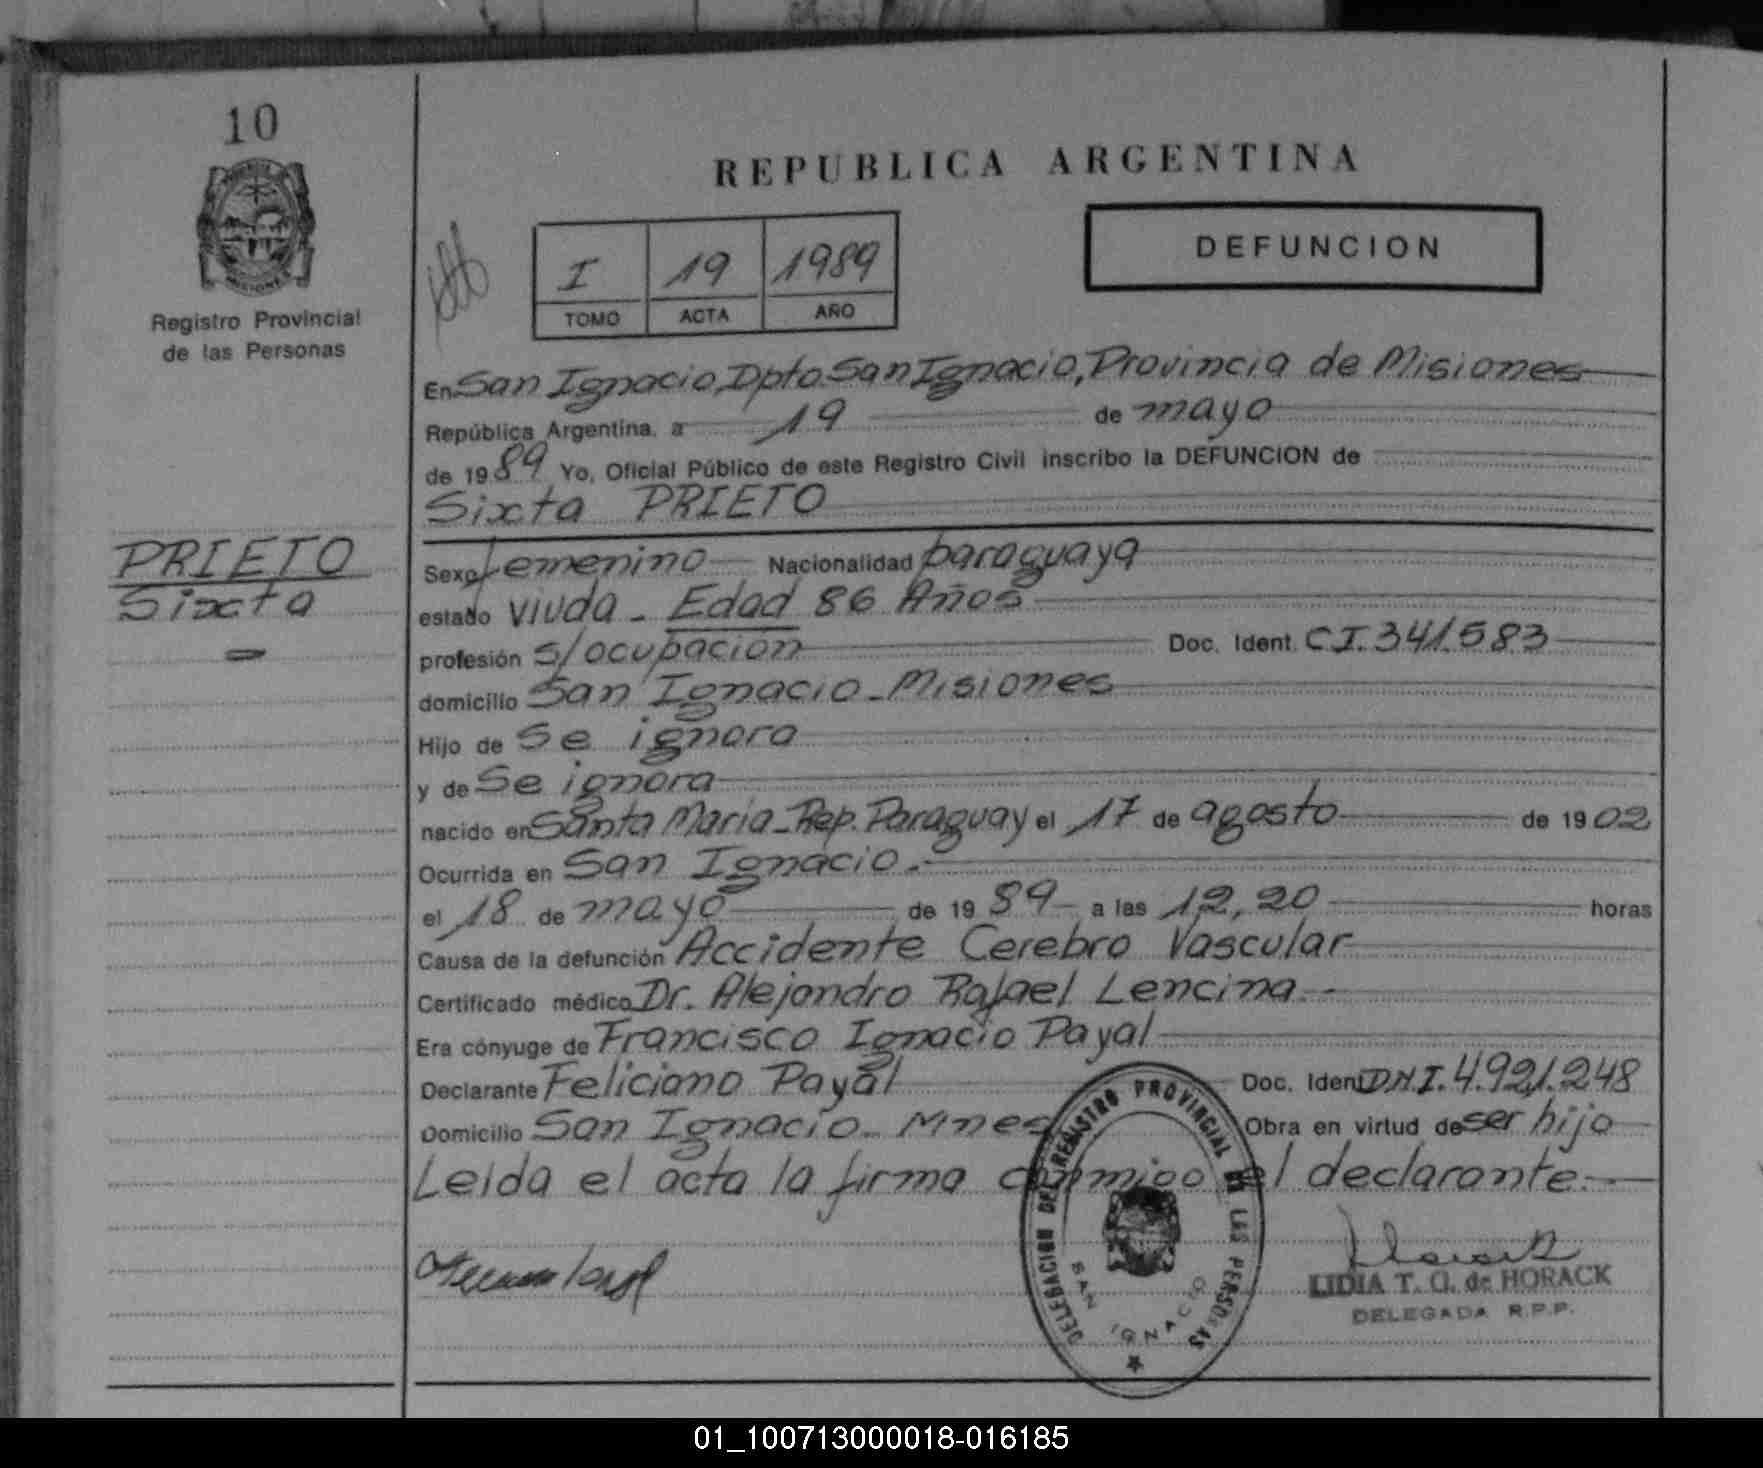 10
MISIONES
Registro Provincial
de las Personas
REPUBLICA ARGENTINA
I 19 1989
TOMO ACTA AÑO
DEFUNCION
En San Ignacio, Dpto San Ignacio, Provincia de Misiones
República Argentina, a 19 de mayo
de 1989 Yo, Oficial Público de este Registro Civil inscribo la DEFUNCION de
Sixta PRIETO
PRIETO
Sixta
Sexo femenino Nacionalidad paraguaya
estado viuda - Edad 86 Años
profesión s/ocupación Doc. Ident. C.I. 341.583
domicilio San Ignacio - Misiones
Hijo de Se ignora
y de Se ignora
nacido en Santa Maria - Rep. Paraguay el 17 de agosto de 1902
Ocurrida en San Ignacio.-
el 18 de mayo de 1989 a las 12,20 horas
Causa de la defunción Accidente Cerebro Vascular
Certificado médico Dr. Alejandro Rafael Lencina.-
Era cónyuge de Francisco Ignacio Payal
Declarante Feliciano Payal Doc. Ident D.N.I. 4.921.248
Domicilio San Ignacio - Mnes Obra en virtud de ser hijo
Leida el acta la firma conmigo el declarante.-
DELEGACION DEL REGISTRO PROVINCIAL DE LAS PERSONAS
SAN IGNACIO
LIDIA T. G. de HORACK
DELEGADA R.P.P.
01_100713000018-016185